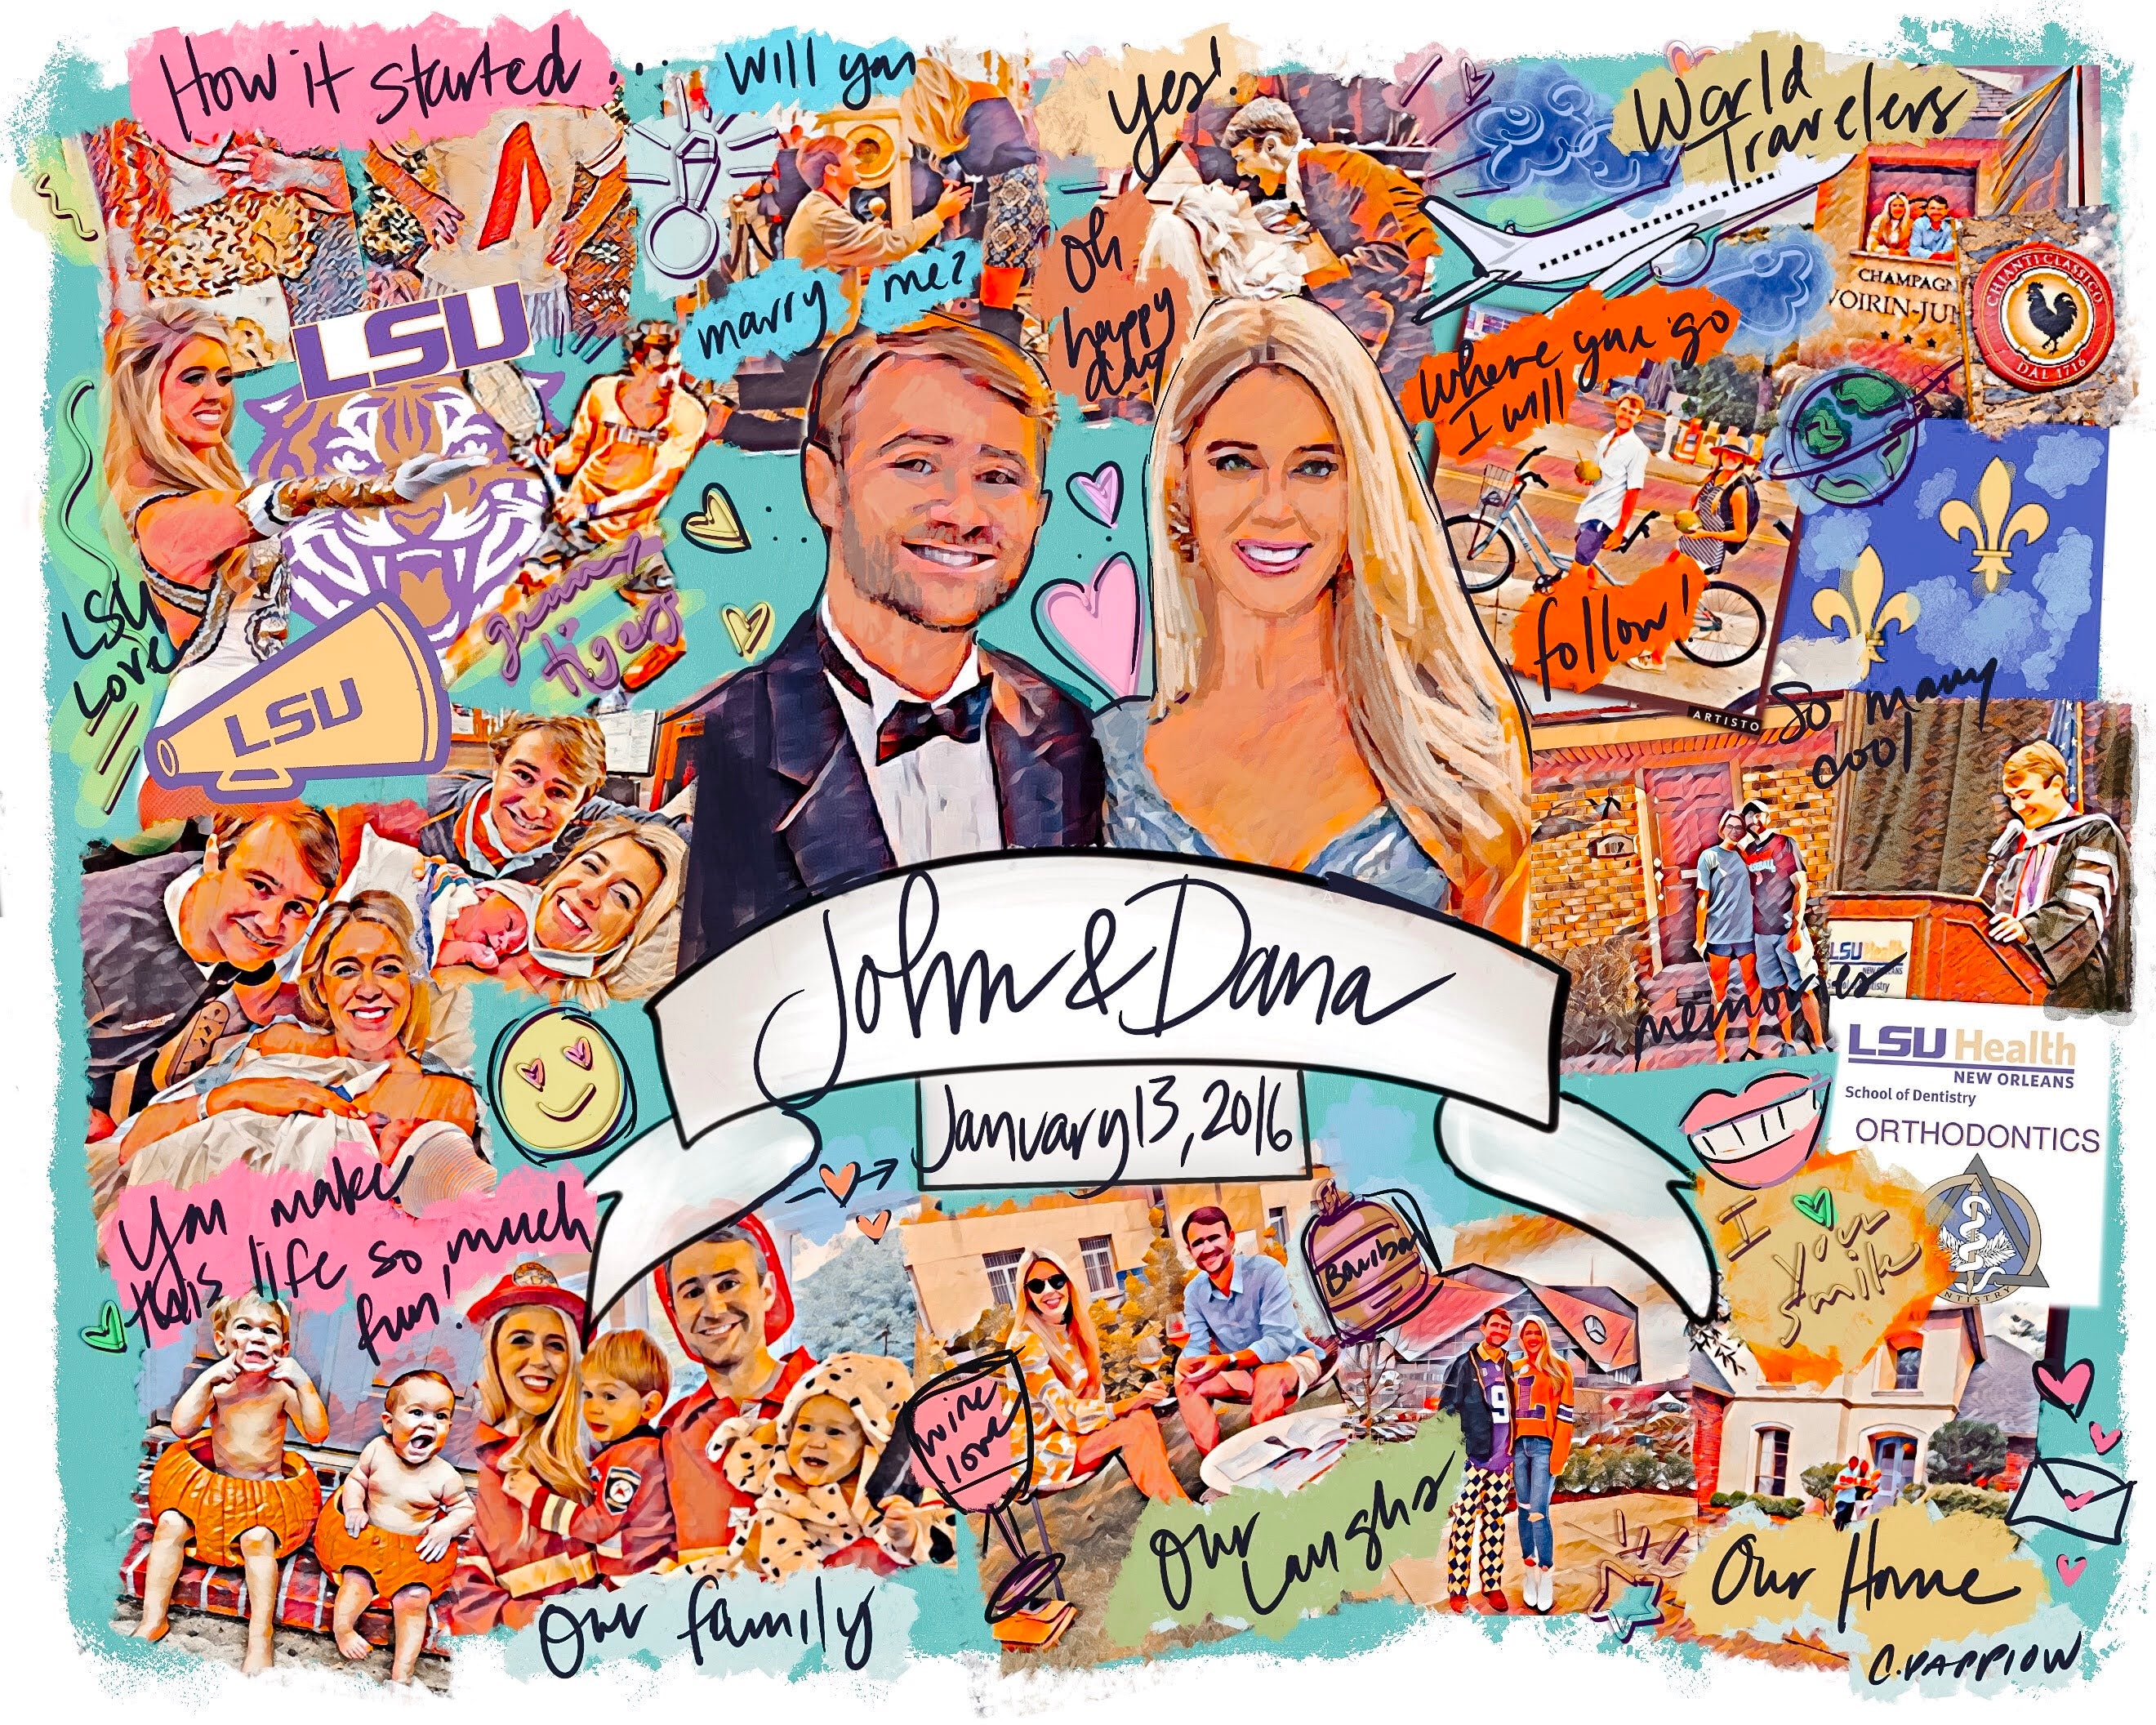 How it started...
Will you
marry me?
Yes!
Oh
happy
day
World
Travelers
CHAMPAGN
VOIRIN-JU
CHIANTI CLASSICO
DAL 1716
Where you go
I will
follow!
ARTISTO
LSU
LSU
Love
LSU
geaux
tigers
So many
cool
memories
102
9
L
LSU Health
NEW ORLEANS
School of Dentistry
LSU Health
NEW ORLEANS
School of Dentistry
ORTHODONTICS
NTISTRY
I
your
smile
John & Dana
January 13, 2016
You make
this life so much
fun!
Our family
wine
love
Bourbon
Our
Laughs
Our Home
C. PAPPION